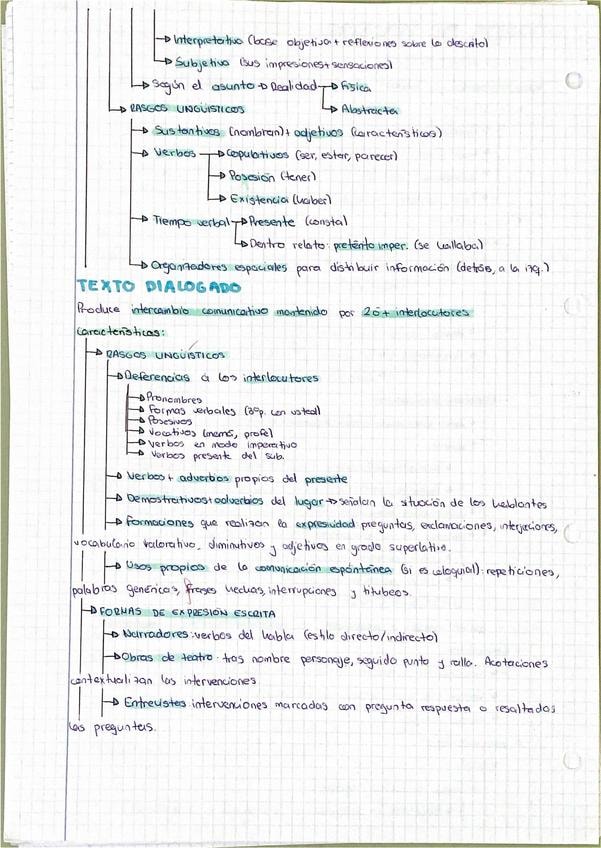 Interpretativo (base objetiva + reflexiones sobre lo descrito)
Subjetivo (sus impresiones + sensaciones)
Según el asunto → Realidad → Física
Abstracta
RASGOS LINGÜÍSTICOS
Sustantivos (nombran) + adjetivos (características)
Verbos → Copulativos (ser, estar, parecer)
Posesión (tener)
Existencia (haber)
Tiempo verbal → Presente (consta)
Dentro relato: pretérito imper. (se hallaba)
Organizadores espaciales para distribuir información (detrás, a la izq.)
TEXTO DIALOGADO
Produce intercambio comunicativo mantenido por 2 o + interlocutores
Características:
RASGOS LINGÜÍSTICOS
Deferencias a los interlocutores
Pronombres
Formas verbales (3ªp. con usted)
Posesivos
Vocativos (mamá, profe)
Verbos en modo imperativo
Verbos presente del sub.
Verbos + adverbios propios del presente
Demostrativos + adverbios del lugar → señalan la situación de los hablantes
Formaciones que realizan la expresividad preguntas, exclamaciones, interjecciones,
vocabulario valorativo, diminutivos y adjetivos en grado superlativo.
Usos propios de la comunicación espontánea (si es coloquial): repeticiones,
palabras genéricas, frases hechas, interrupciones y titubeos.
FORMAS DE EXPRESIÓN ESCRITA
Narradores: verbos del habla (estilo directo/indirecto)
Obras de teatro: tras nombre personaje, seguido punto y ralla. Acotaciones
contextualizan las intervenciones
Entrevistas intervenciones marcadas con pregunta respuesta o resaltados
las preguntas.